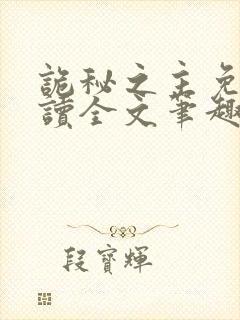 詭秘之主免
讀全文筆趣
段寶輝